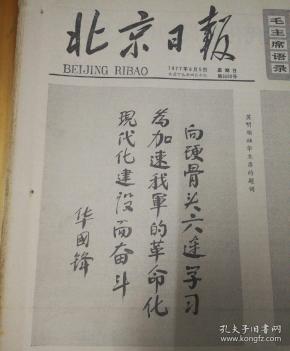 北京日報
BEIJING RIBAO
1977年6月5日
星期日
毛主席语录
英明领袖华主席的题词
向硬骨头六连学习
为加速我军的革命化
现代化建设而奋斗
华国锋
孔夫子旧书网